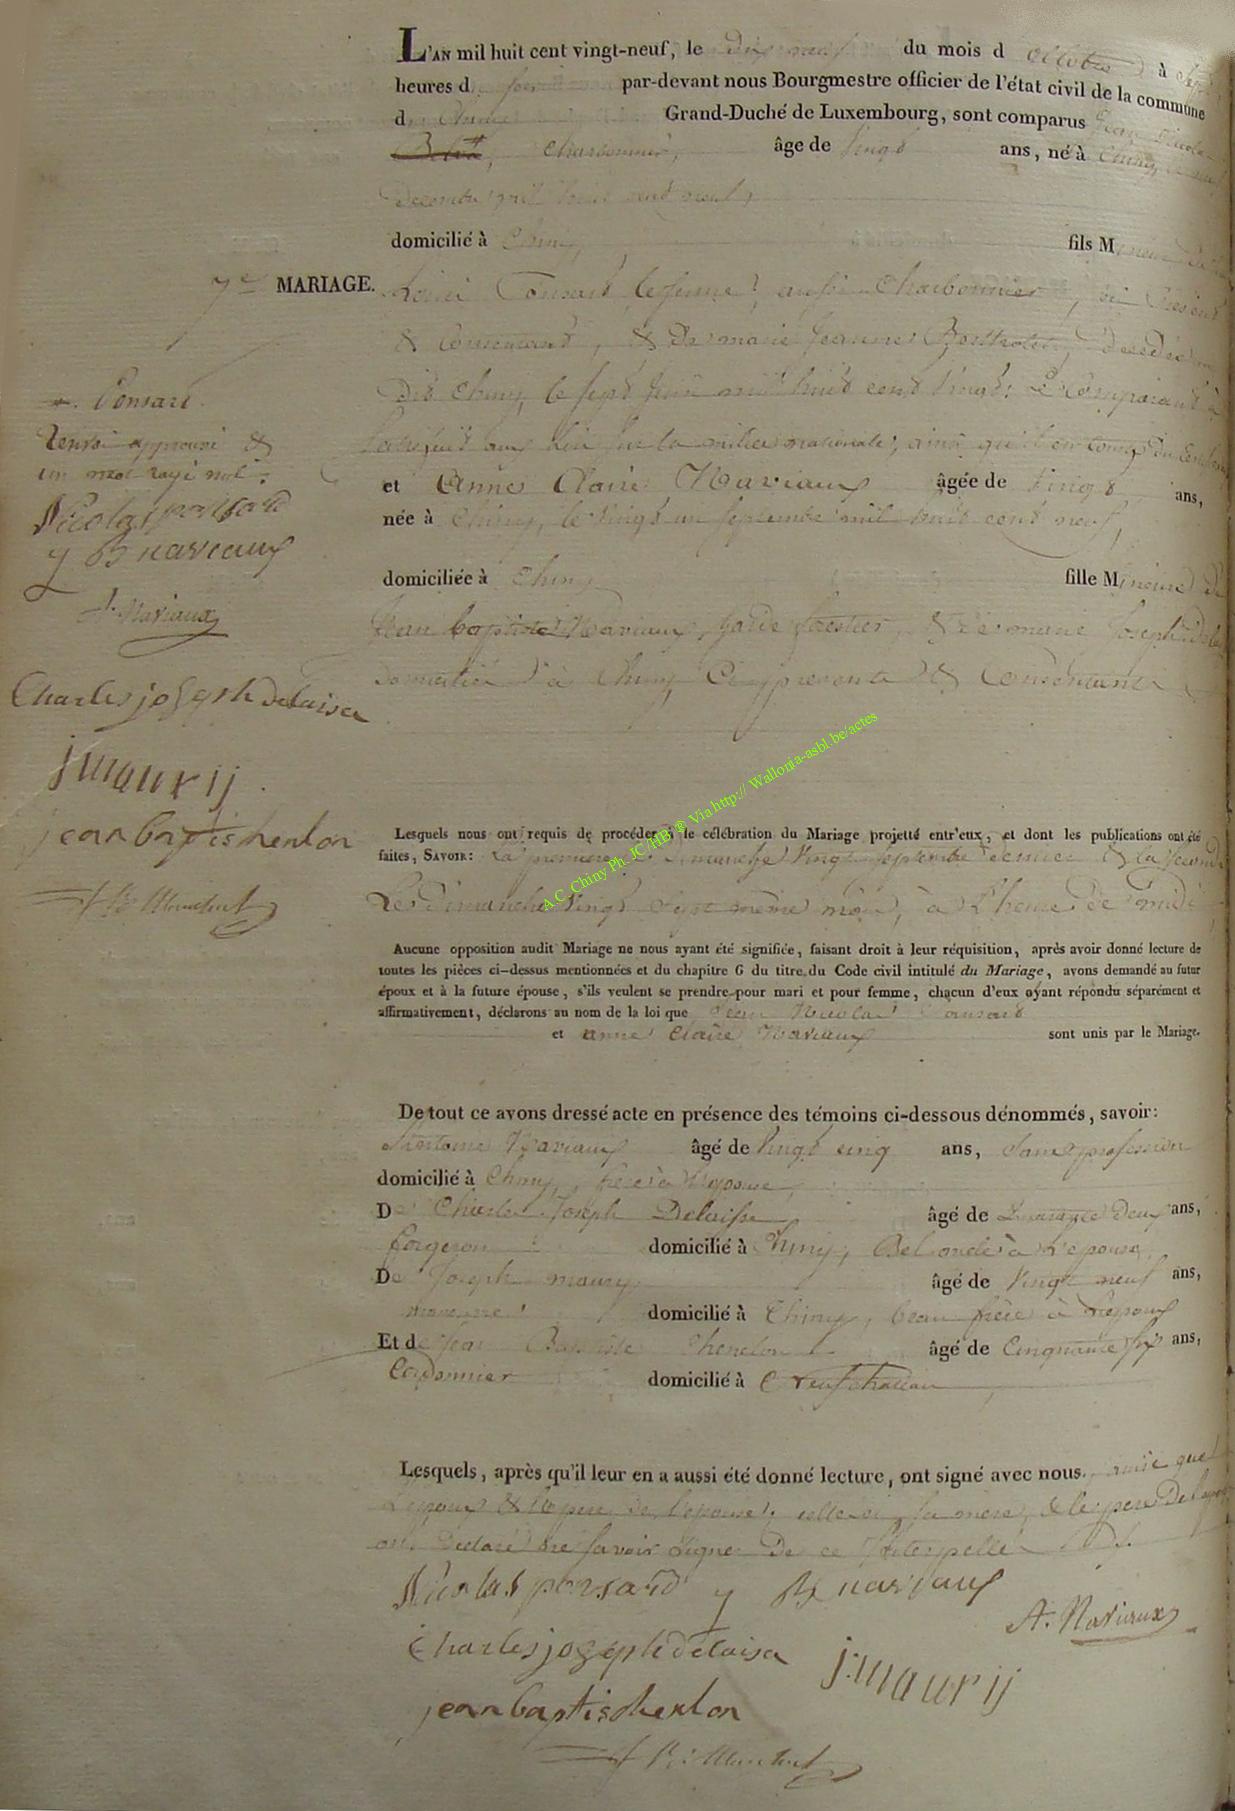 L'AN mil huit cent vingt-neuf, le dix neuf du mois d octobre à
heures d par-devant nous Bourgmestre officier de l'état civil de la commune
d Grand-Duché de Luxembourg, sont comparus Jean Nicolas
charbonnier, âge de Vingt ans, né à Chiny,
Decembre mil huit cent neuf,
domicilié à Chiny, fils Mineur de
7e MARIAGE.
Louis Ponsard le jeune, aussi Charbonnier, ici present
& Consentant, & De marie Jeanne décédée au
Dit Chiny le sept juin mil huit cent Vingt. Le Comparant à
satisfait aux loix sur la milice nationale, ainsi qu'il en conste du
et Anne Claire Naviaux âgée de Vingt ans,
née à Chiny, le Vingt un septembre mil huit cent neuf,
domiciliée à Chiny fille Mineure de
Jean Baptiste Naviaux, garde forestier, & De marie Joseph
domiciliés à Chiny, Ci presents & Consentants
Ponsard.
Renvoi approuvé &
un mot rayé nul.
Nicolas ponsard
J B naviaux
A. Naviaux
Charles joseph delaisse
j maurij
jean baptis henlon
Lesquels nous ont requis de procéder à le célébration du Mariage projetté entr'eux, et dont les publications ont été
faites, SAVOIR: La première Dimanche Vingt septembre dernier & la seconde
Le Dimanche Vingt Sept même mois, à L'heure de midi
A.C. Chiny Ph. JC/HB ® Via http:// Wallonia-asbl.be/actes
Aucune opposition audit Mariage ne nous ayant été signifiée, faisant droit à leur réquisition, après avoir donné lecture de
toutes les pièces ci-dessus mentionnées et du chapitre 6 du titre du Code civil intitulé du Mariage, avons demandé au futur
époux et à la future épouse, s'ils veulent se prendre pour mari et pour femme, chacun d'eux ayant répondu séparément et
affirmativement, déclarons au nom de la loi que Jean Nicolas Ponsard
et anne Claire Naviaux sont unis par le Mariage.
De tout ce avons dressé acte en présence des témoins ci-dessous dénommés, savoir:
Antoine Naviaux âgé de Vingt cinq ans, sans profession
domicilié à Chiny, frère à L'épouse,
De Charles Joseph Delaisse âgé de quarante deux ans,
forgeron domicilié à Chiny, Bel oncle à L'epouse
De Joseph maury âgé de Vingt neuf ans,
domicilié à Chiny, beau frère à L'epoux
Et de jean Baptiste Henelon âgé de Cinquante six ans,
Cordonnier domicilié à Neufchateau
Lesquels, après qu'il leur en a aussi été donné lecture, ont signé avec nous. ainsi que
L'epoux & le père de l'epouse, celle-ci, sa mère, & le père De l'epoux
ont Déclaré ne savoir signer De ce Interpellé
Nicolas ponsard J B naviaux
A. Naviaux
Charles joseph delaisse j maurij
jean baptis henlon